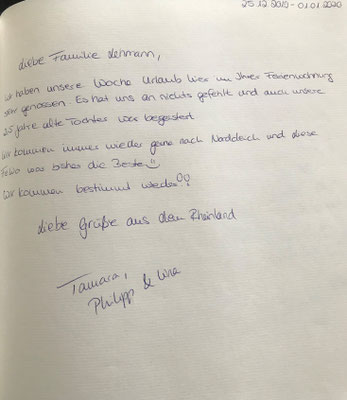 25.12.2019 - 01.01.2020
Liebe Familie Lehmann,
wir haben unsere Woche Urlaub hier in Ihrer Ferienwohnung
sehr genossen. Es hat uns an nichts gefehlt und auch unsere
Jahre alte Tochter war begeistert
Wir kommen immer wieder gerne nach Norddeich und diese
Fewo war bisher die Beste
Wir kommen bestimmt wieder!!
Liebe Grüße aus dem Rheinland
Tamara,
Philipp &